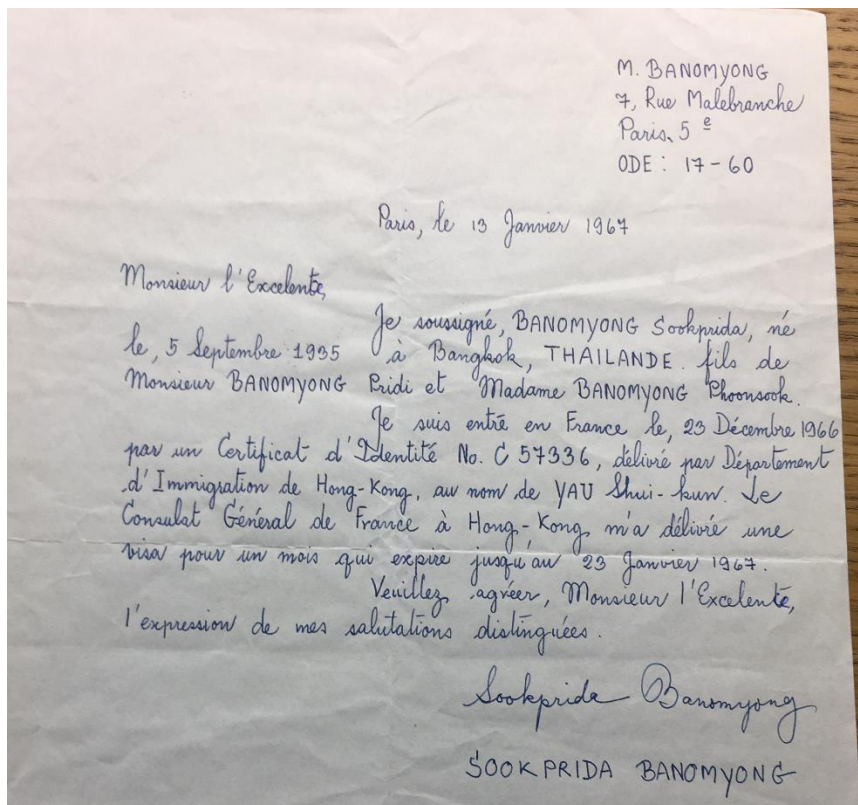 M. BANOMYONG
7, Rue Malebranche
Paris. 5 e
ODE : 17-60
Paris, le 13 Janvier 1967
Monsieur l'Excelente,
Je soussigné, BANOMYONG Sookprida, né
le, 5 Septembre 1935 à Bangkok, THAILANDE. fils de
Monsieur BANOMYONG Pridi et Madame BANOMYONG Phoonsook.
Je suis entré en France le, 23 Décembre 1966
par un Certificat d'Identité No. C 57336, délivré par Département
d'Immigration de Hong-Kong, au nom de YAU Shui-kun. Le
Consulat Général de France à Hong-Kong m'a délivré une
visa pour un mois qui expire jusqu'au 23 Janvier 1967.
Veuillez agréer, Monsieur l'Excelente,
l'expression de mes salutations distinguées.
Sookprida Banomyong
SOOKPRIDA BANOMYONG